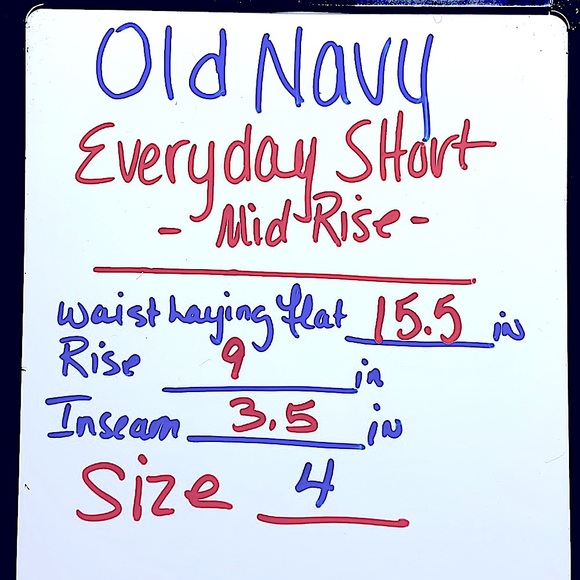 Old Navy
Everyday Short
- Mid Rise -
Waist Laying flat 15.5 in
Rise 9 in
Inseam 3.5 in
Size 4